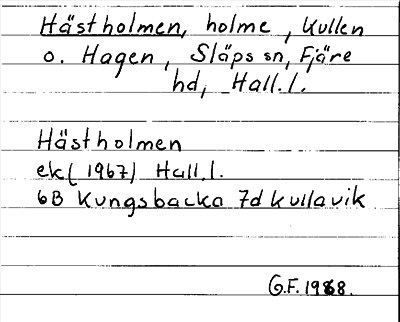 Hästholmen, holme, Kullen
o. Hagen, Släps sn, Fjäre
hd, Hall.l.
Hästholmen
ek (1967) Hall.l.
6B Kungsbacka 7d Kullavik
G.F. 1968.